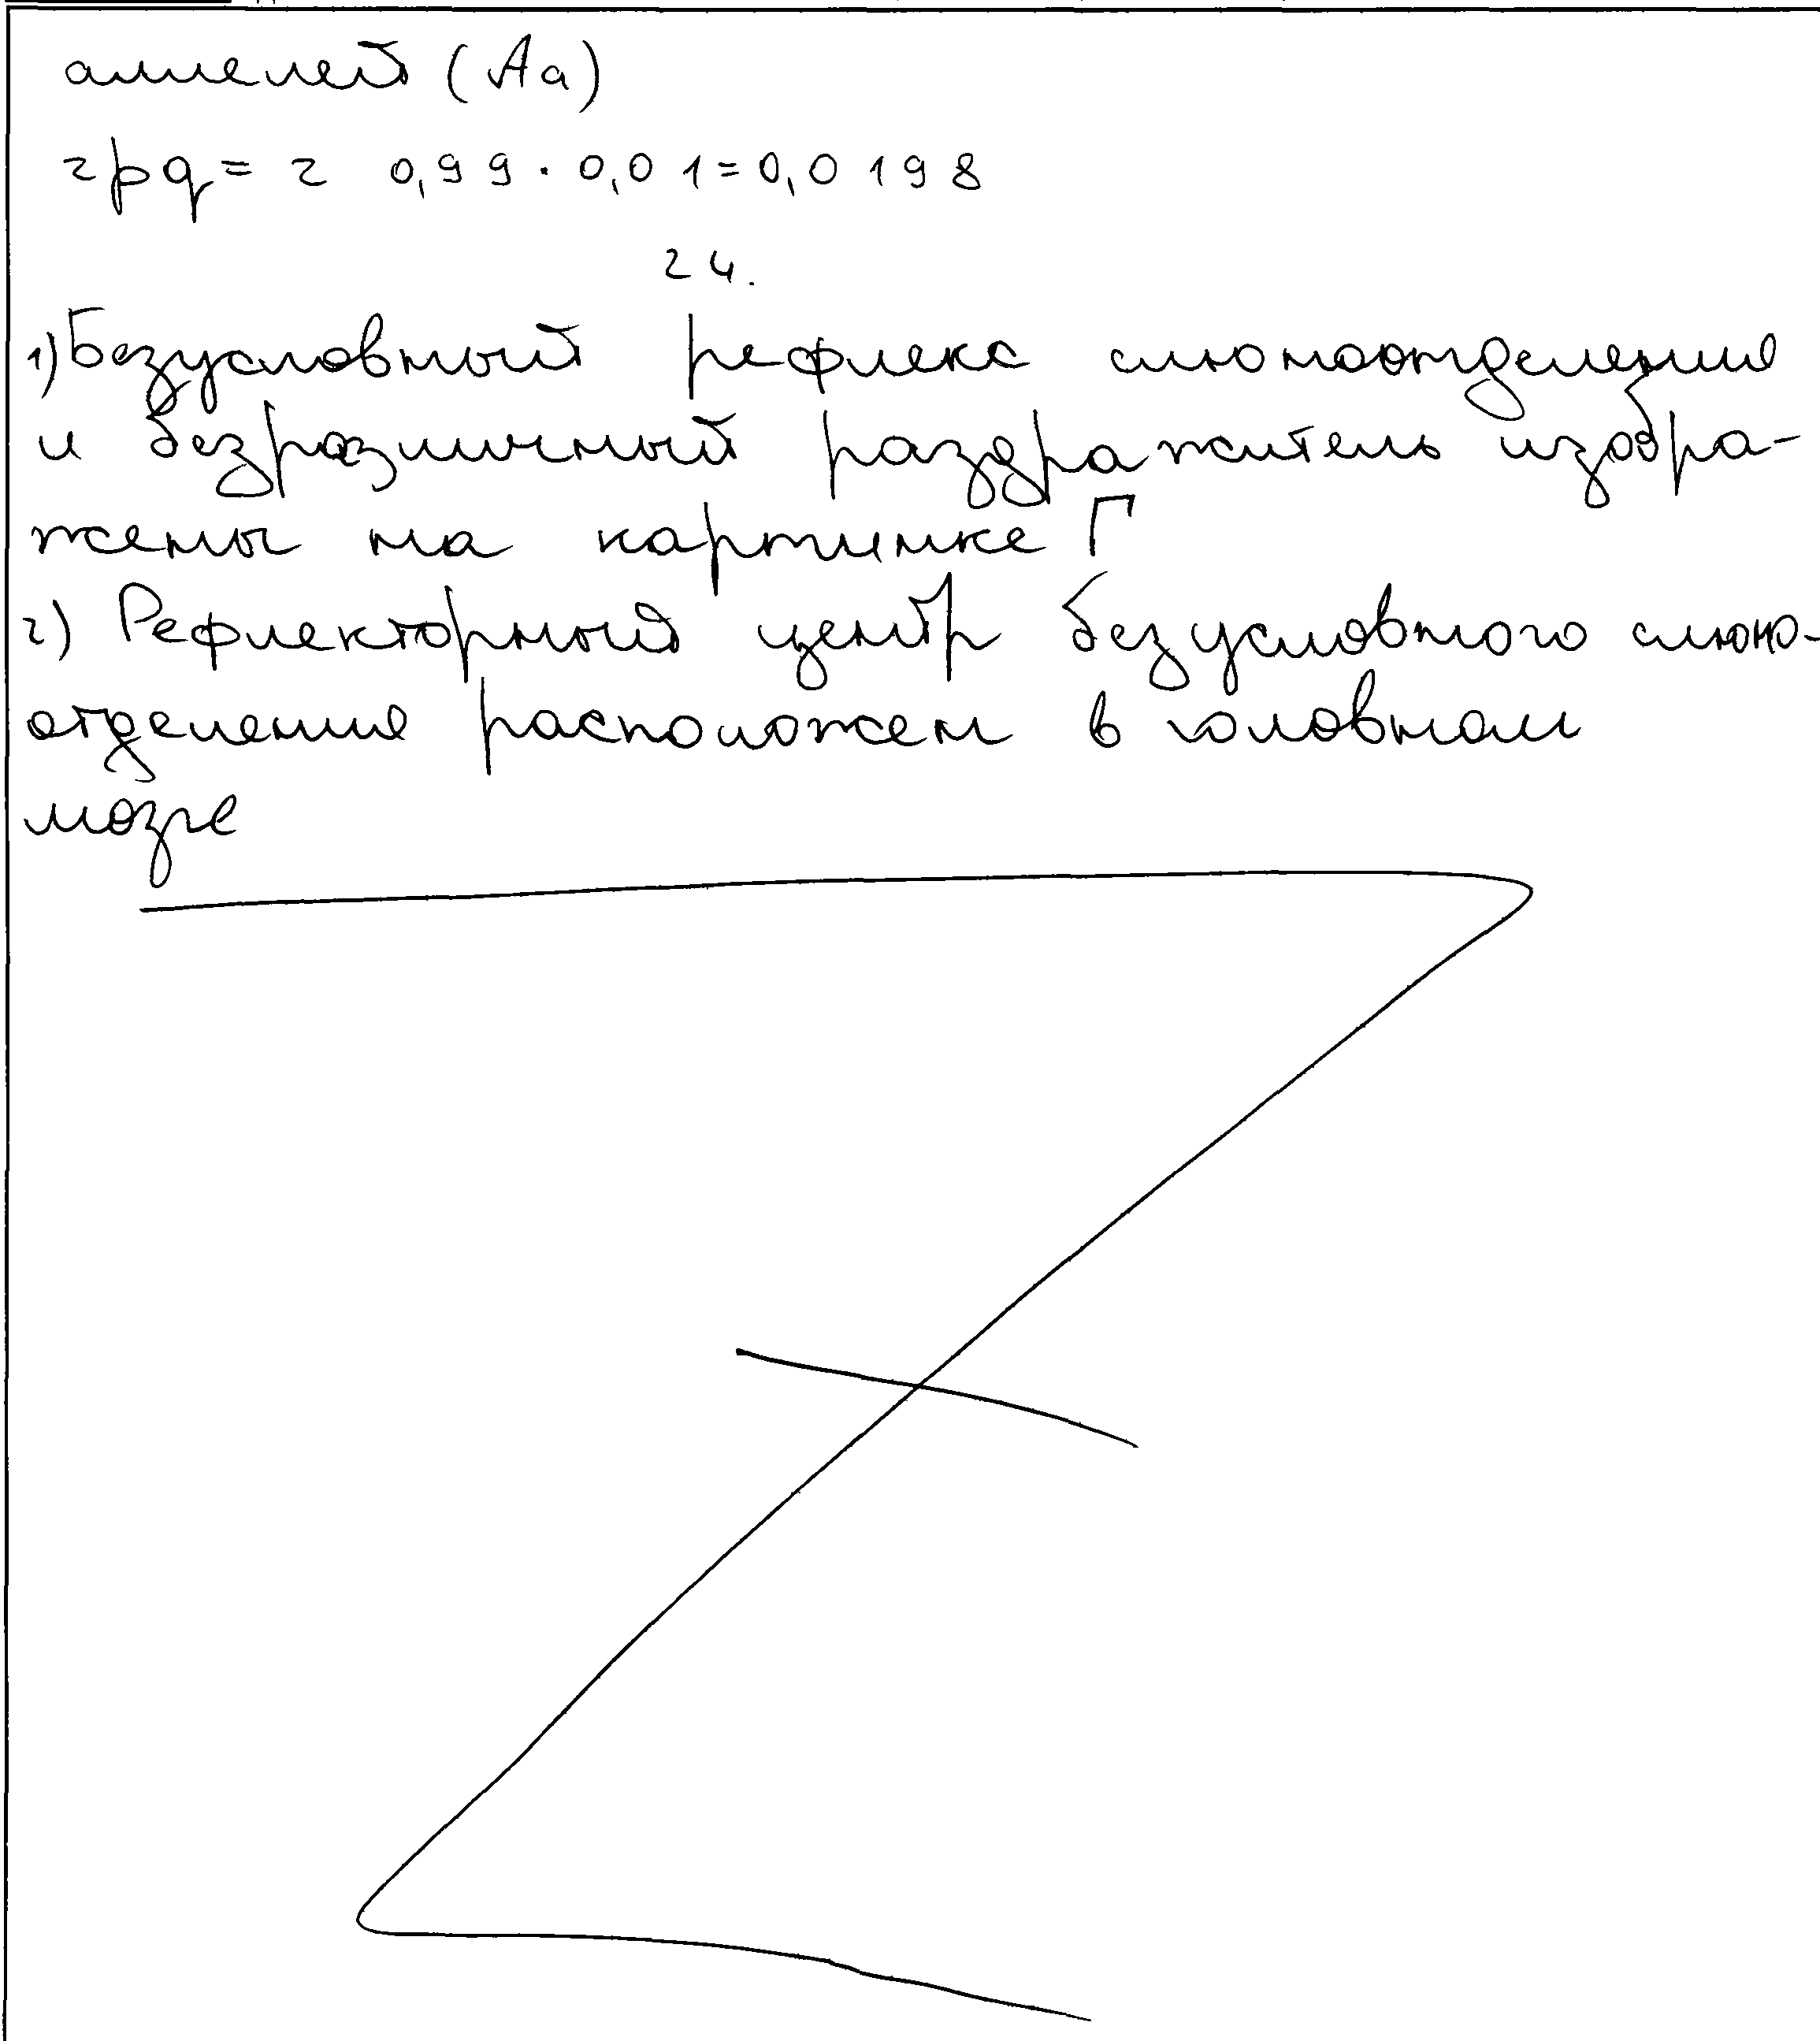 аллелей (Aa)
2pq = 2 0,99 · 0,01 = 0,0198
24.
1) Безусловный рефлекс слюноотделения
и безразличный раздражитель изобра-
жены на картинке Г
2) Рефлекторный центр безусловного слюно-
отделения расположен в головном
мозге